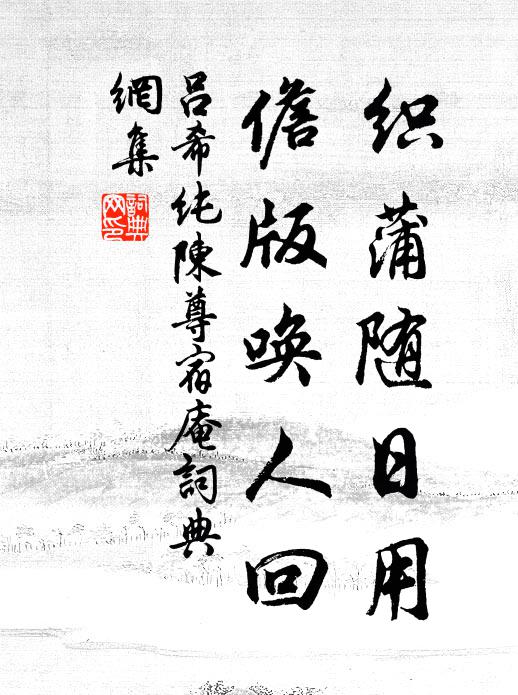 织蒲随日用
儋版唤人回
吕希纯陳尊宿庵詞典
網集
詞典
网印